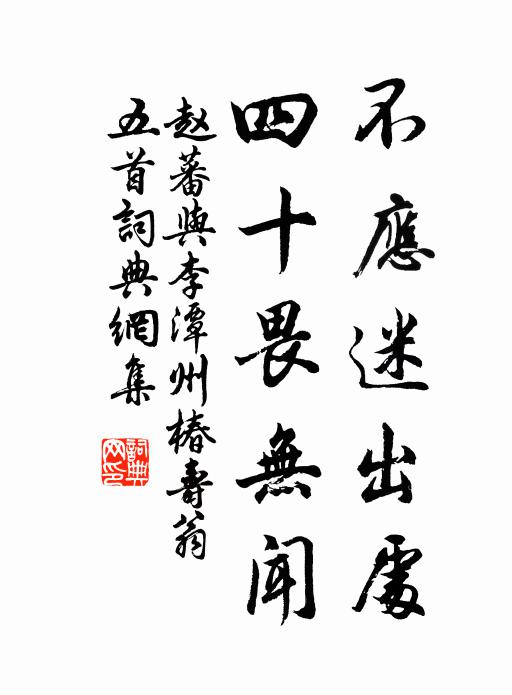 不應迷出處
四十畏無聞
赵蕃與李潭州椿壽翁
五首詞典網集
詞典
网印